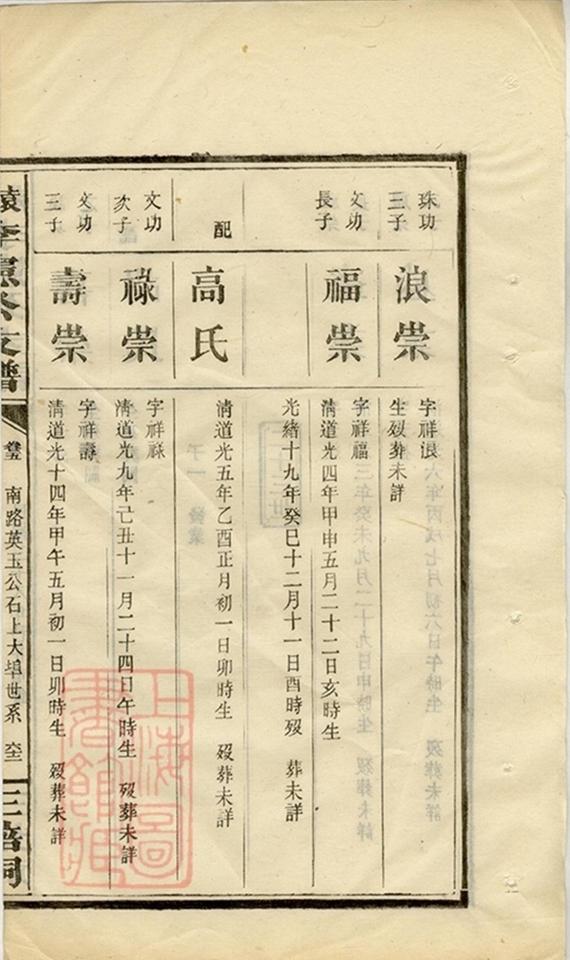 珠功
三子
浪崇
字祥浪
生歿葬未詳
文功
長子
福崇
字祥福
清道光四年甲申五月二十二日亥時生
光緒十九年癸巳十二月十一日酉時歿 葬未詳
配
高氏
清道光五年乙酉正月初一日卯時生 歿葬未詳
文功
次子
祿崇
字祥祿
清道光九年己丑十一月二十四日午時生 歿葬未詳
文功
三子
壽崇
字祥壽
清道光十四年甲午五月初一日卯時生 歿葬未詳
李 公支譜
南路英玉公石上大埠世系
上海圖
書館藏